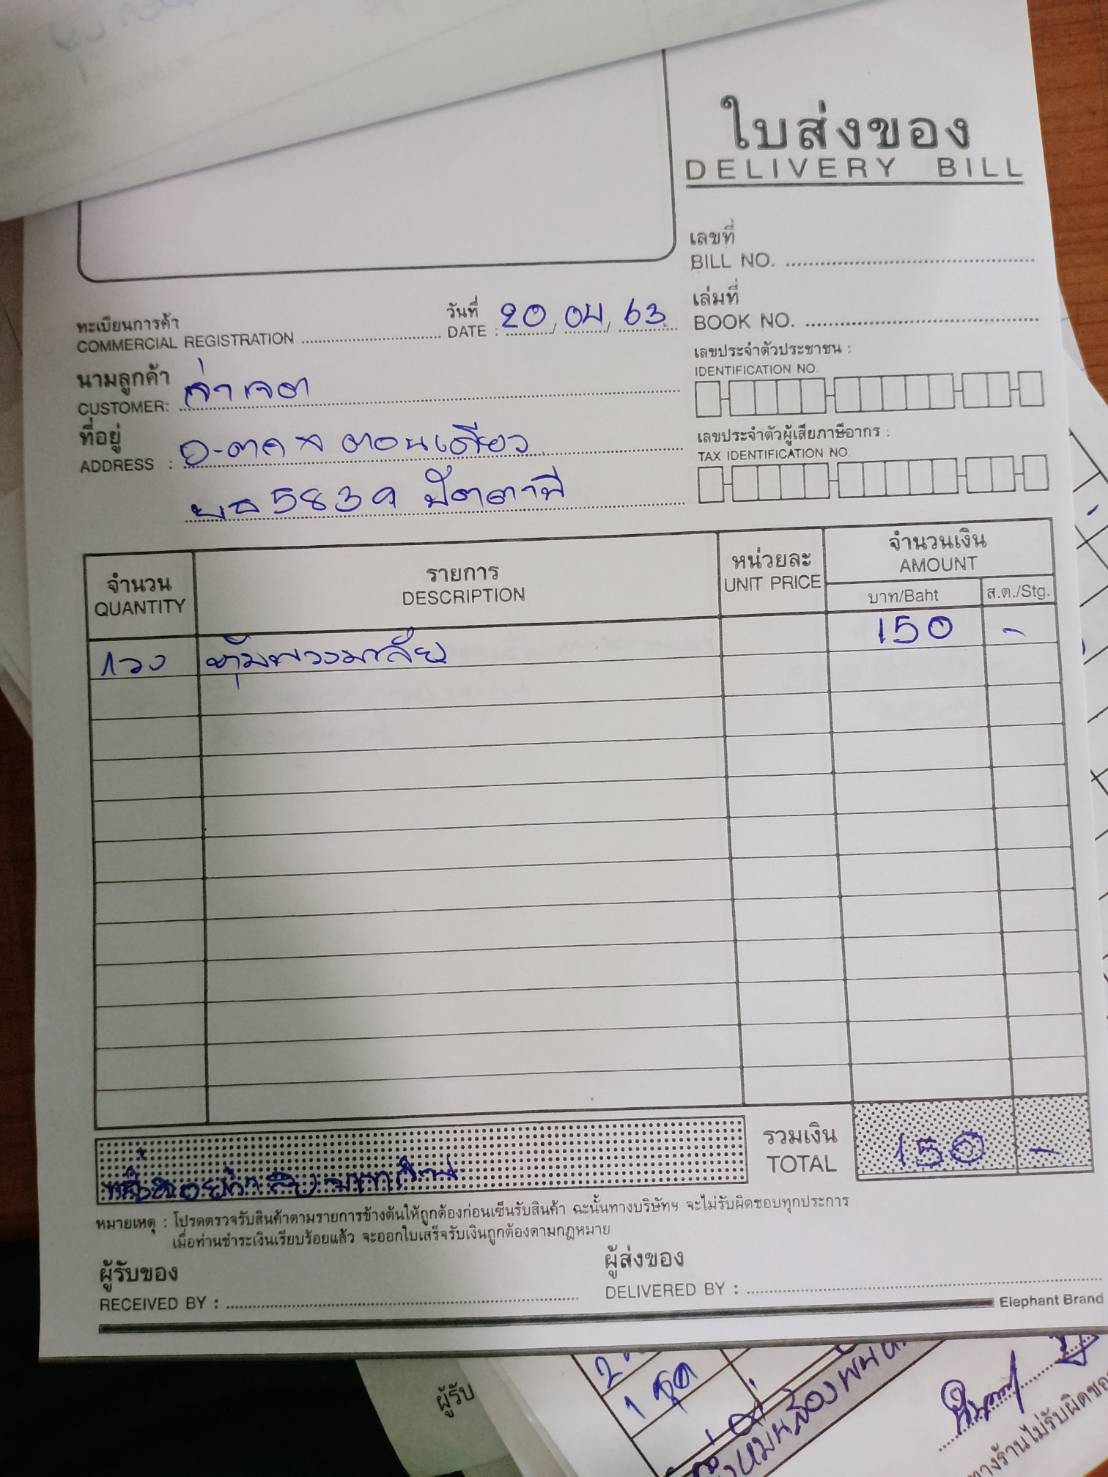 ใบส่งของ
DELIVERY BILL
เลขที่
BILL NO.
เล่มที่
BOOK NO.
ทะเบียนการค้า
COMMERCIAL REGISTRATION
วันที่
DATE : 20 / 04 / 63
นามลูกค้า
CUSTOMER: จ่าเจต
ที่อยู่
ADDRESS : ตอนเดียว
5839 ปัตตานี
เลขประจำตัวประชาชน :
IDENTIFICATION NO.
เลขประจำตัวผู้เสียภาษีอากร :
TAX IDENTIFICATION NO.
จำนวน
QUANTITY
รายการ
DESCRIPTION
หน่วยละ
UNIT PRICE
จำนวนเงิน
AMOUNT
บาท/Baht ส.ต./Stg.
1วง หุ้มพวงมาลัย 150 -
รวมเงิน
TOTAL 150 -
หนึ่งร้อยห้าสิบบาทถ้วน
หมายเหตุ : โปรดตรวจรับสินค้าตามรายการข้างต้นให้ถูกต้องก่อนเซ็นรับสินค้า ฉะนั้นทางบริษัทฯ จะไม่รับผิดชอบทุกประการ
เมื่อท่านชำระเงินเรียบร้อยแล้ว จะออกใบเสร็จรับเงินถูกต้องตามกฎหมาย
ผู้รับของ
RECEIVED BY :
ผู้ส่งของ
DELIVERED BY :
Elephant Brand
1 ชุด
ผู้รับ
ทางร้านไม่รับผิดชอ